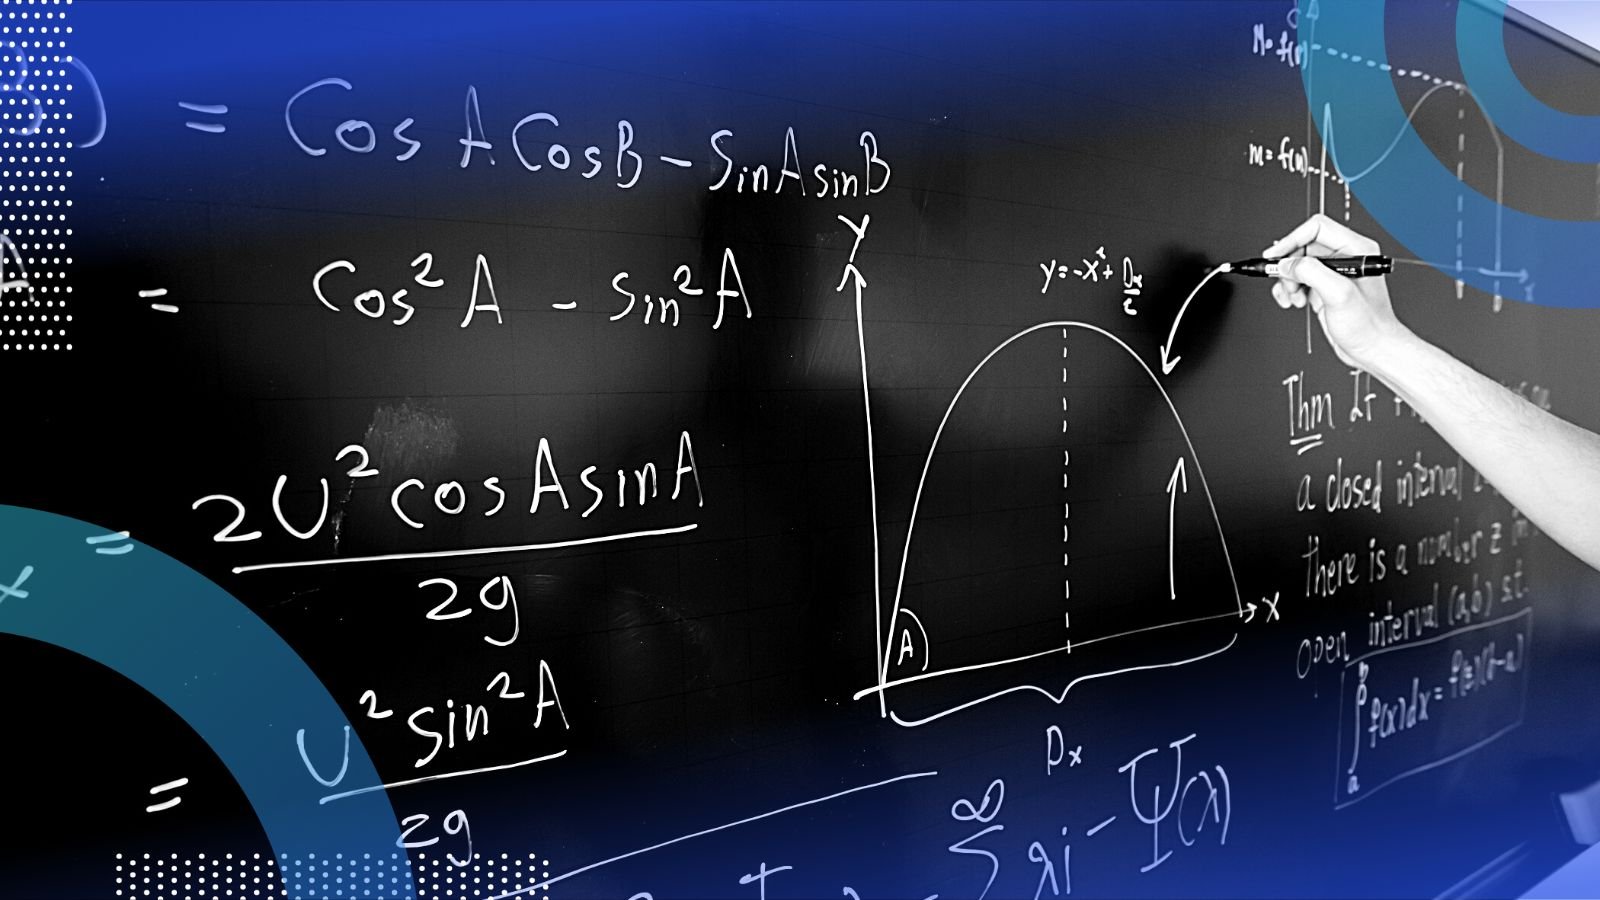 ) = Cos A Cos B - Sin A sin B
= Cos² A - Sin² A
= 2U² cos A sin A
2g
= U² sin² A
2g
Y
y = -x² +
A
X
Dx
∞
Σ λi - Ψ(λ)
m = f(n)
Thm If
a closed interval
there is a number z in
open interval (a,b) s.t.
∫ₐᵇ f(x)dx = f(z)(b-a)